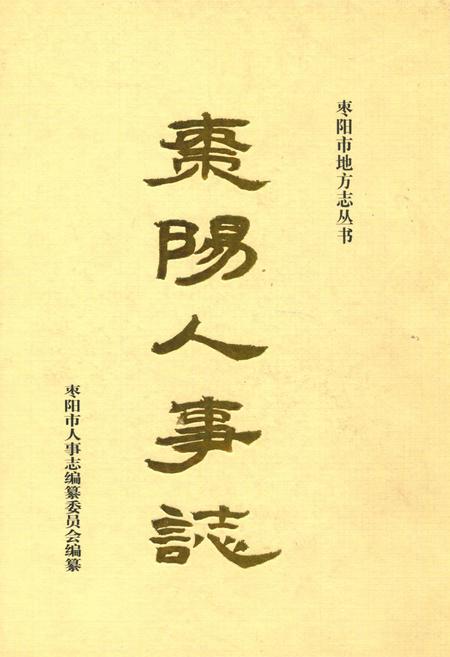 枣阳市地方志丛书
棗陽人事誌
枣阳市人事志编纂委员会编纂